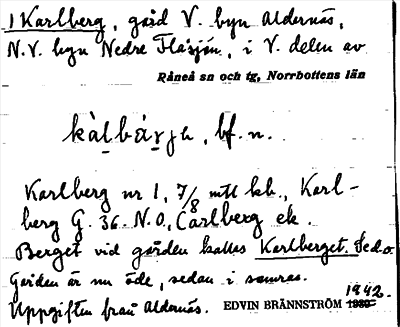 1 Karlberg, gård V. byn Aldernäs,
N.V. byn Nedre Flåsjön, i V. delen av
Råneå sn och tg, Norrbottens län
kàlbárjh, bf. n.
Karlberg nr 1, 7/8 mtl kb., Karl-
berg G. 36. N.O, Carlberg ek.
Berget vid gården kallas Karlberget. Se d.o.
Gården är nu öde, sedan i somras.
Uppgiften från Aldernäs. EDVIN BRÄNNSTRÖM 1939 1942.